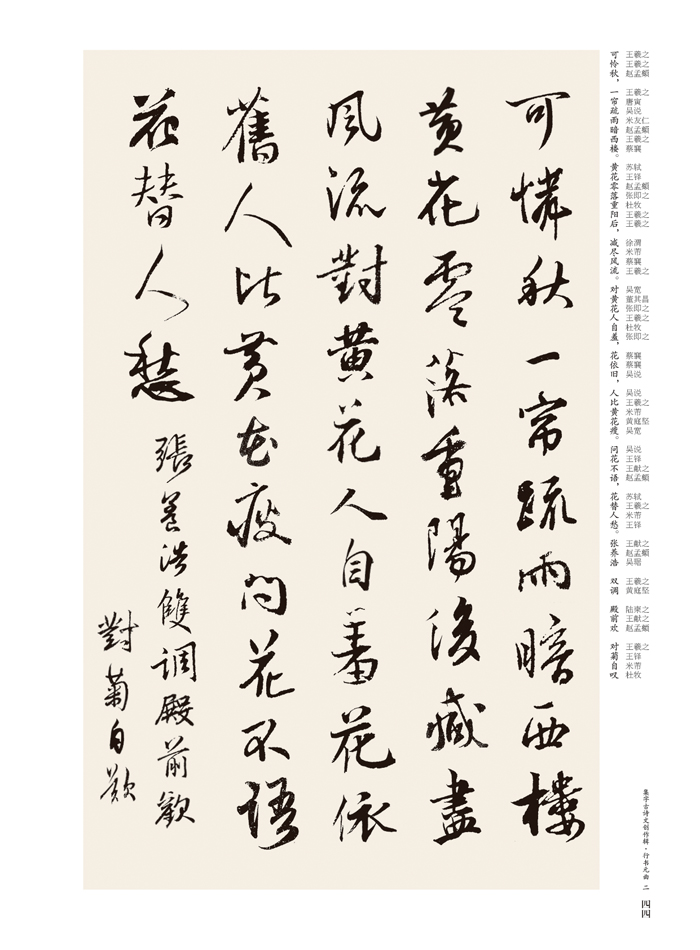 可憐秋一帘疏雨暗西樓
黄花零落重陽後減盡
風流對黄花人自羞花依
舊人比黄花瘦問花不語
花替人愁
張養浩雙調殿前歡
對菊自歎
王羲之 王羲之 赵孟頫 王羲之 唐寅 吴说 米友仁 赵孟頫 王羲之 蔡襄 苏轼 王铎 赵孟頫 张即之 杜牧 王羲之 王羲之 徐渭 米芾 蔡襄 王羲之 吴宽 董其昌 张即之 王羲之 杜牧 张即之 蔡襄 蔡襄 吴说 吴说 王羲之 米芾 黄庭坚 吴宽 吴说 王铎 王献之 赵孟頫 苏轼 王羲之 米芾 王铎 王献之 赵孟頫 吴琚 王羲之 黄庭坚 陆柬之 王献之 赵孟頫 王羲之 王铎 米芾 杜牧
可怜秋，一帘疏雨暗西楼。黄花零落重阳后，减尽风流。对黄花人自羞，花依旧，人比黄花瘦。问花不语，花替人愁。张养浩 双调 殿前欢 对菊自叹
集字古诗文创作辑·行书元曲 二
四四